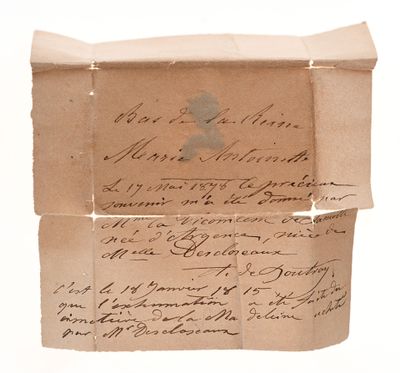 Bas de la Reine
Marie Antoinette
Le 17 Mai 1878 ce précieux
souvenir m'a été donné par
Mme la Vicomtesse de
née d'Argence, nièce de
Melle Descloseaux
A. de
C'est le 18 Janvier 1815
que l'exhumation a été faite du
cimetière de la Madeleine acheté
par Mr Descloseaux